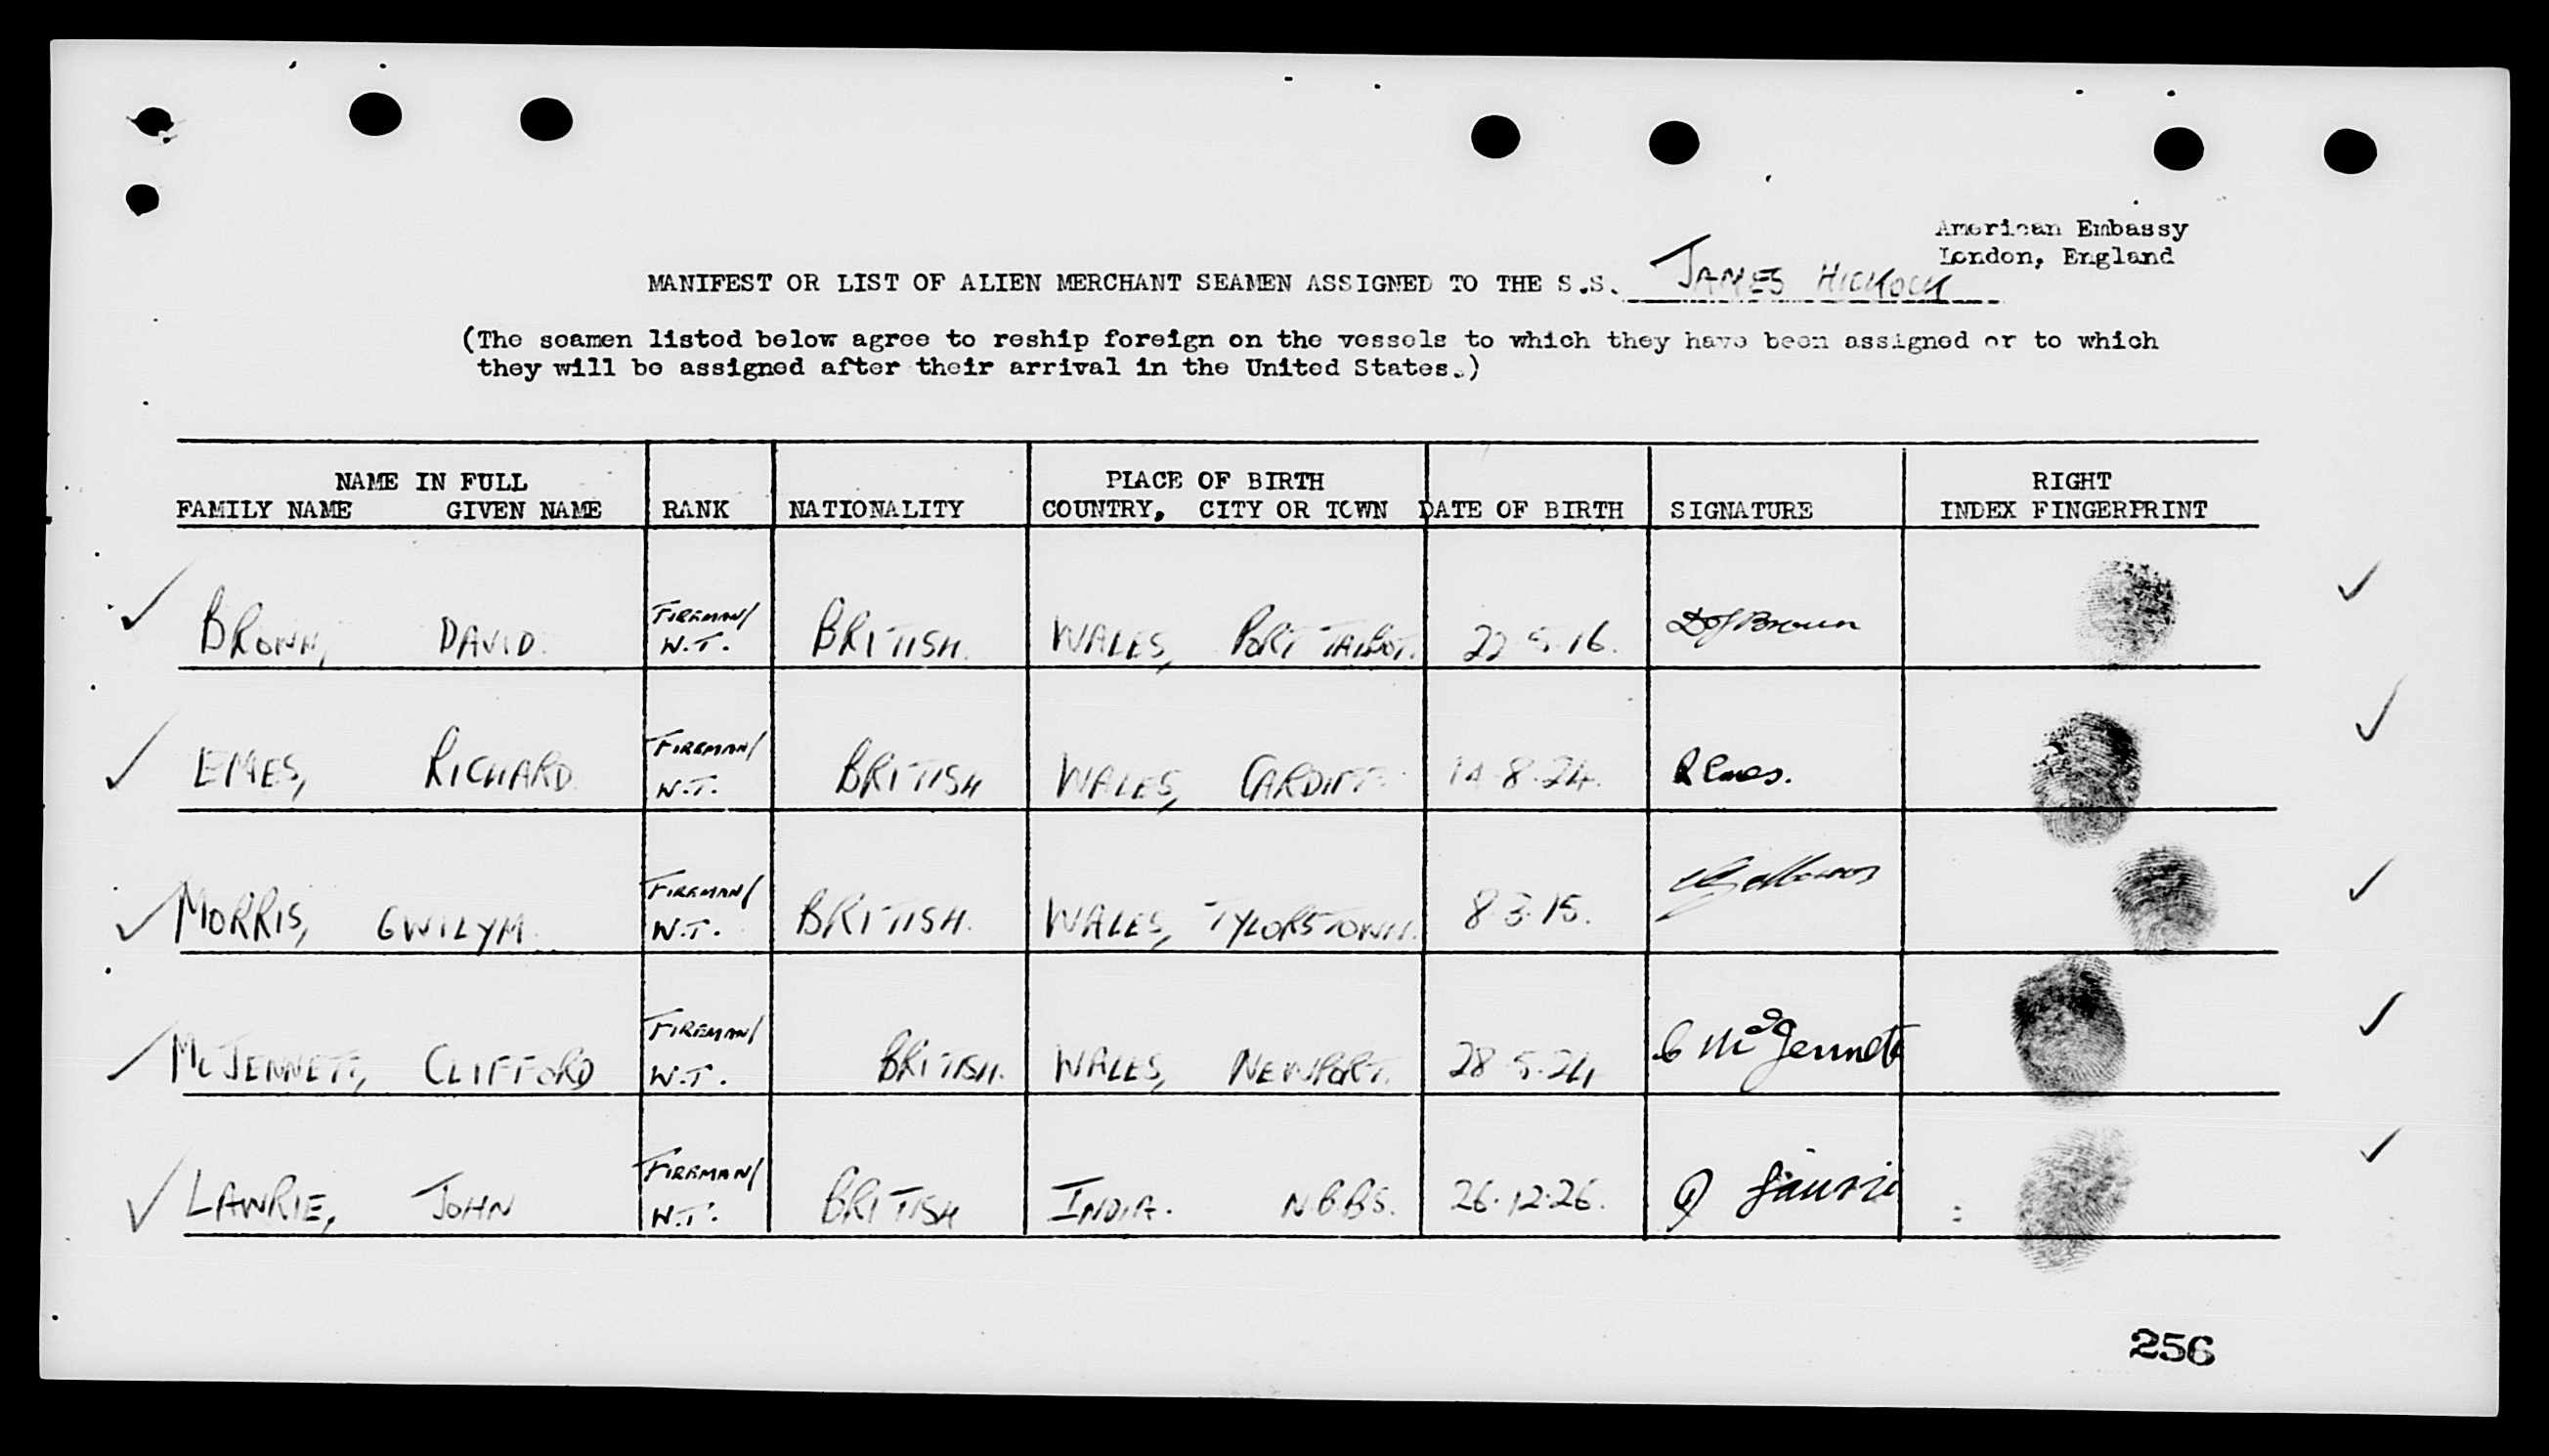 American Embassy
London, England
MANIFEST OR LIST OF ALIEN MERCHANT SEAMEN ASSIGNED TO THE S.S. JAMES HICKOCK
(The seamen listed below agree to reship foreign on the vessels to which they have been assigned or to which
they will be assigned after their arrival in the United States.)
NAME IN FULL PLACE OF BIRTH RIGHT
FAMILY NAME GIVEN NAME RANK NATIONALITY COUNTRY, CITY OR TOWN DATE OF BIRTH SIGNATURE INDEX FINGERPRINT
BROWN, DAVID. FIREMAN/ W.T. BRITISH. WALES, PORT TALBOT. 22-5-16. Brown
EMES, RICHARD. FIREMAN/ W.T. BRITISH WALES, CARDIFF. 14-8-24. R Emes.
MORRIS, GWILYM. FIREMAN/ W.T. BRITISH. WALES, TYLORSTOWN. 8-3-15.
McJENNETT, CLIFFORD FIREMAN/ W.T. BRITISH. WALES, NEWPORT. 28-5-24 C McJennett
LAWRIE, JOHN FIREMAN/ W.T. BRITISH INDIA. 26-12-26. J Lawrie
256